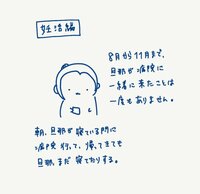 妊活編
8月から11月まで、
旦那が病院に
一緒に来たことは
一度もありません。
朝、旦那が寝ている間に
病院行って、帰ってきても
旦那まだ寝てたりする。